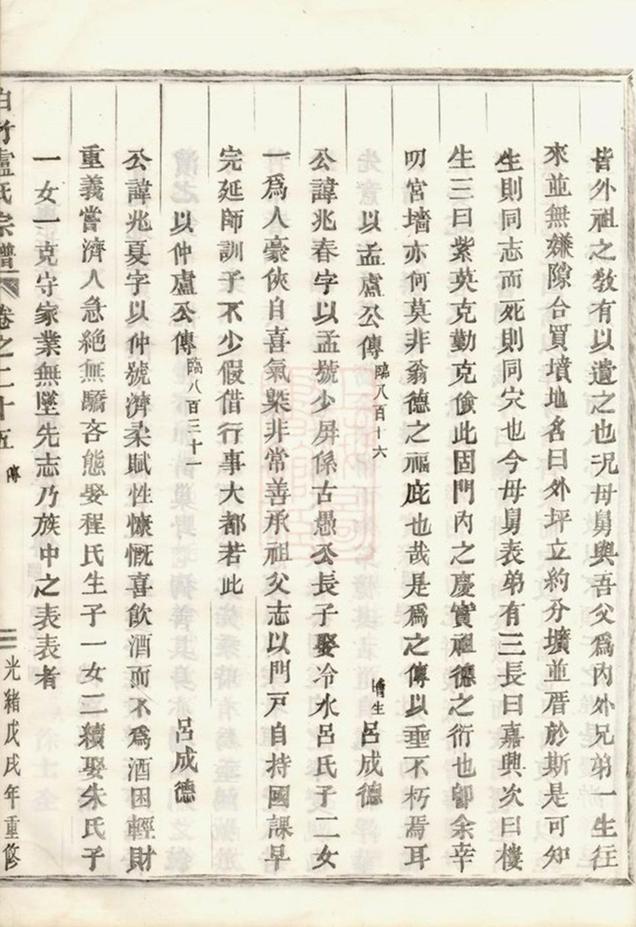 皆外祖之敎有以遺之也況母舅與吾父爲內外兄弟一生往
來並無嫌隙合買墳地名曰外坪立約分壙並厝於斯是可知
生則同志而死則同穴也今母舅表弟有三長曰嘉興次曰樓
生三曰紫英克勤克儉此固門內之慶實祖德之衍也卽余幸
叨宮墻亦何莫非翁德之福庇也哉是爲之傳以垂不朽焉耳
以孟盧公傳臨八百十六 生呂成德
公諱兆春字以孟號少屏係古愚公長子娶冷水呂氏子二女
一爲人豪俠自喜氣槩非常善承祖父志以門戸自持國課早
完延師訓子不少假借行事大都若此
以仲盧公傳臨八百三十一 呂成德
公諱兆夏字以仲號濟柔賦性慷慨喜飲酒而不爲酒困輕財
重義嘗濟人急絶無驕吝態娶程氏生子一女二續娶朱氏子
一女一克守家業無墜先志乃族中之表表者
白竹盧氏宗譜 卷之二十五 傳 三 光緒戊戌年重修